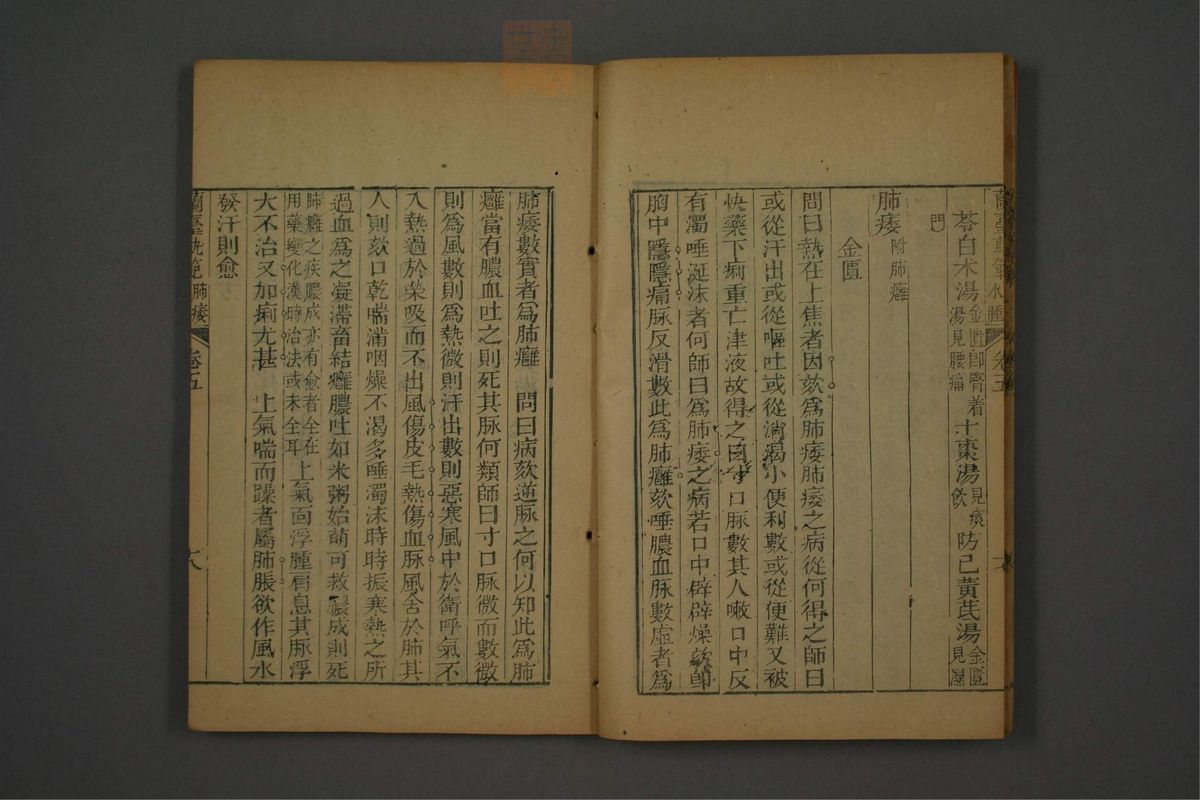 苓白术湯金匱卽腎着湯見腰痛 十棗湯見痰飲 防己黃芪湯金匱見濕
門
肺痿附肺癰
金匱
問曰熱在上焦者因欬爲肺痿肺痿之病從何得之師曰
或從汗出或從嘔吐或從消渴小便利數或從便難又被
快藥下痢重亡津液故得之曰寸口脈數其人嗽口中反
有濁唾涎沫者何師曰爲肺痿之病若口中辟辟燥欬卽
胸中隱隱痛脈反滑數此爲肺癰欬唾膿血脈數虛者爲
肺痿數實者爲肺癰 問曰病欬逆脈之何以知此爲肺
癰當有膿血吐之則死其脈何類師曰寸口脈微而數微
則爲風數則爲熱微則汗出數則惡寒風中於衛呼氣不
入熱過於榮吸而不出風傷皮毛熱傷血脈風舍於肺其
人則欬口乾喘滿咽燥不渴多唾濁沫時時振寒熱之所
過血爲之凝滯畜結癰膿吐如米粥始萌可救膿成則死
肺癰之疾膿成亦有愈者全在用藥變化漢時治法或未全耳 上氣面浮腫肩息其脈浮
大不治又加痢尤甚 上氣喘而躁者屬肺脹欲作風水
發汗則愈
蘭臺軌範 肺痿 卷五 六